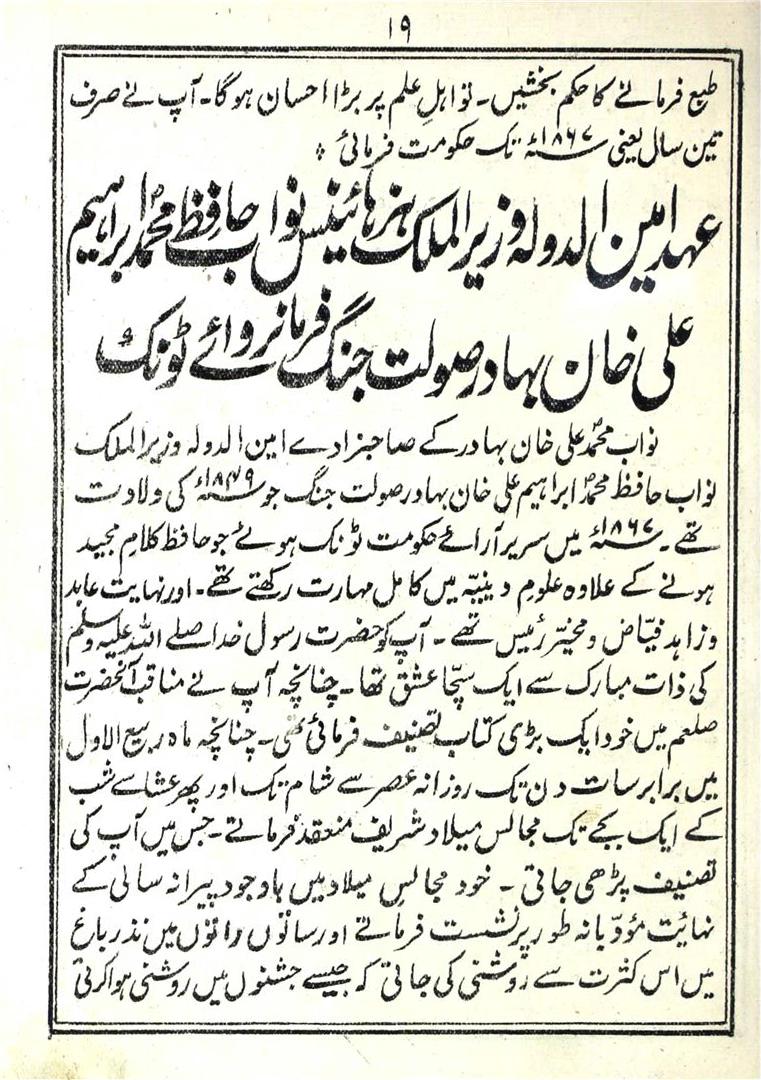 ۱۹
طبع فرمانے کا حکم بخشیں۔ تو اہلِ علم پر بڑا احسان ہوگا۔ آپ نے صرف
تین سال یعنی ۱۸۶۷ء تک حکومت فرمائی ؞
عہد امین الدولہ وزیر الملک ہزہائینس نواب حافظ محمد ابراہیم
علی خان بہادر صولت جنگ فرمانروائے ٹونک
نواب محمد علی خان بہادر کے صاحبزادے امین الدولہ وزیر الملک
نواب حافظ محمد ابراہیم علی خان بہادر صولت جنگ جو ۱۸۴۹ء کی ولادت
تھے۔ ۱۸۶۷ء میں سریر آرائے حکومت ٹونک ہوئے جو حافظ کلام مجید
ہونے کے علاوہ علوم دینیہ میں کامل مہارت رکھتے تھے۔ اور نہایت عابد
و زاہد فیّاض و مخیّر رئیس تھے۔ آپ کو حضرت رسول خدا صلے اللہ علیہ وسلم
کی ذات مبارک سے ایک سچّا عشق تھا۔ چنانچہ آپ نے مناقب آنحضرت
صلعم میں خود ایک بڑی کتاب تصنیف فرمائی تھی۔ چنانچہ ماہ ربیع الاول
میں برابر سات دن تک روزانہ عصر سے شام تک اور پھر عشا سے شب
کے ایک بجے تک مجالس میلاد شریف منعقد فرماتے۔ جس میں آپ کی
تصنیف پڑھی جاتی۔ خود مجالس میلاد میں باوجود پیرانہ سالی کے
نہائت مؤدّبانہ طور پر نشست فرماتے اور ساتوں راتوں میں نذر باغ
میں اس کثرت سے روشنی کی جاتی کہ جیسے جشنوں میں روشنی ہوا کرتی